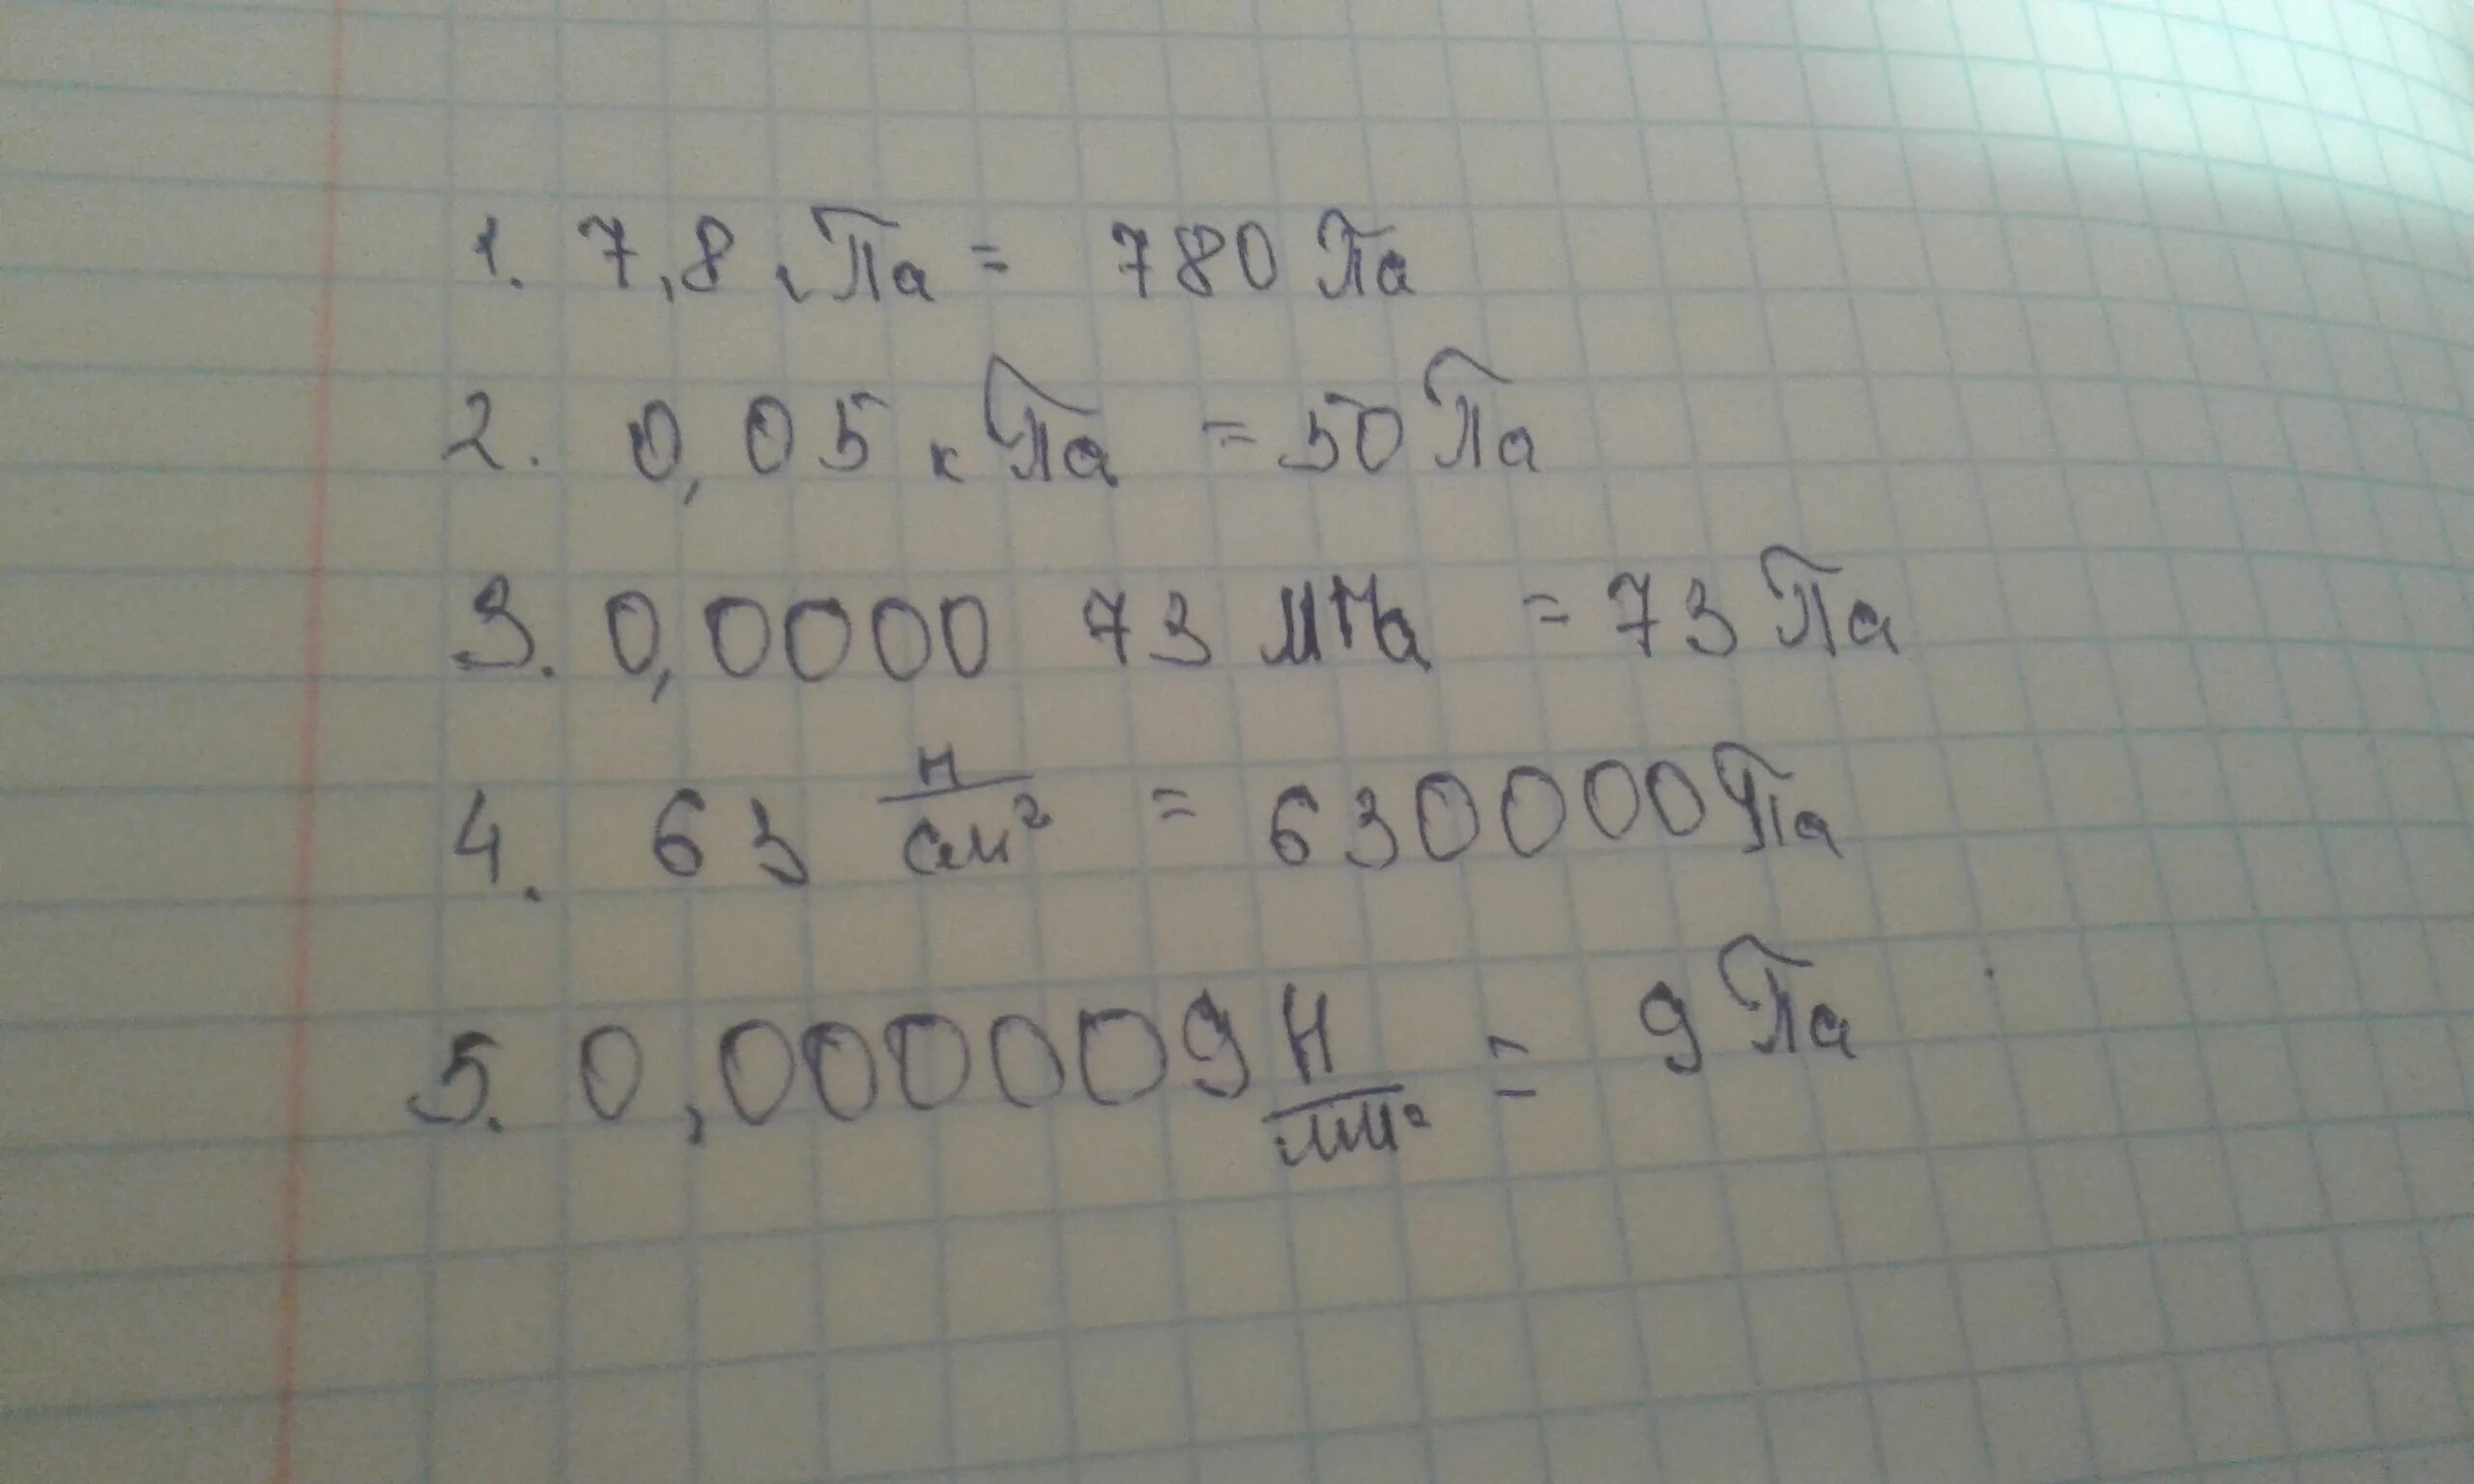 1. 7,8 гПа = 780 Па
2. 0,05 кПа = 50 Па
3. 0,0000 73 МПа = 73 Па
4. 63 Н/см² = 630000 Па
5. 0,000009 Н/мм² = 9 Па